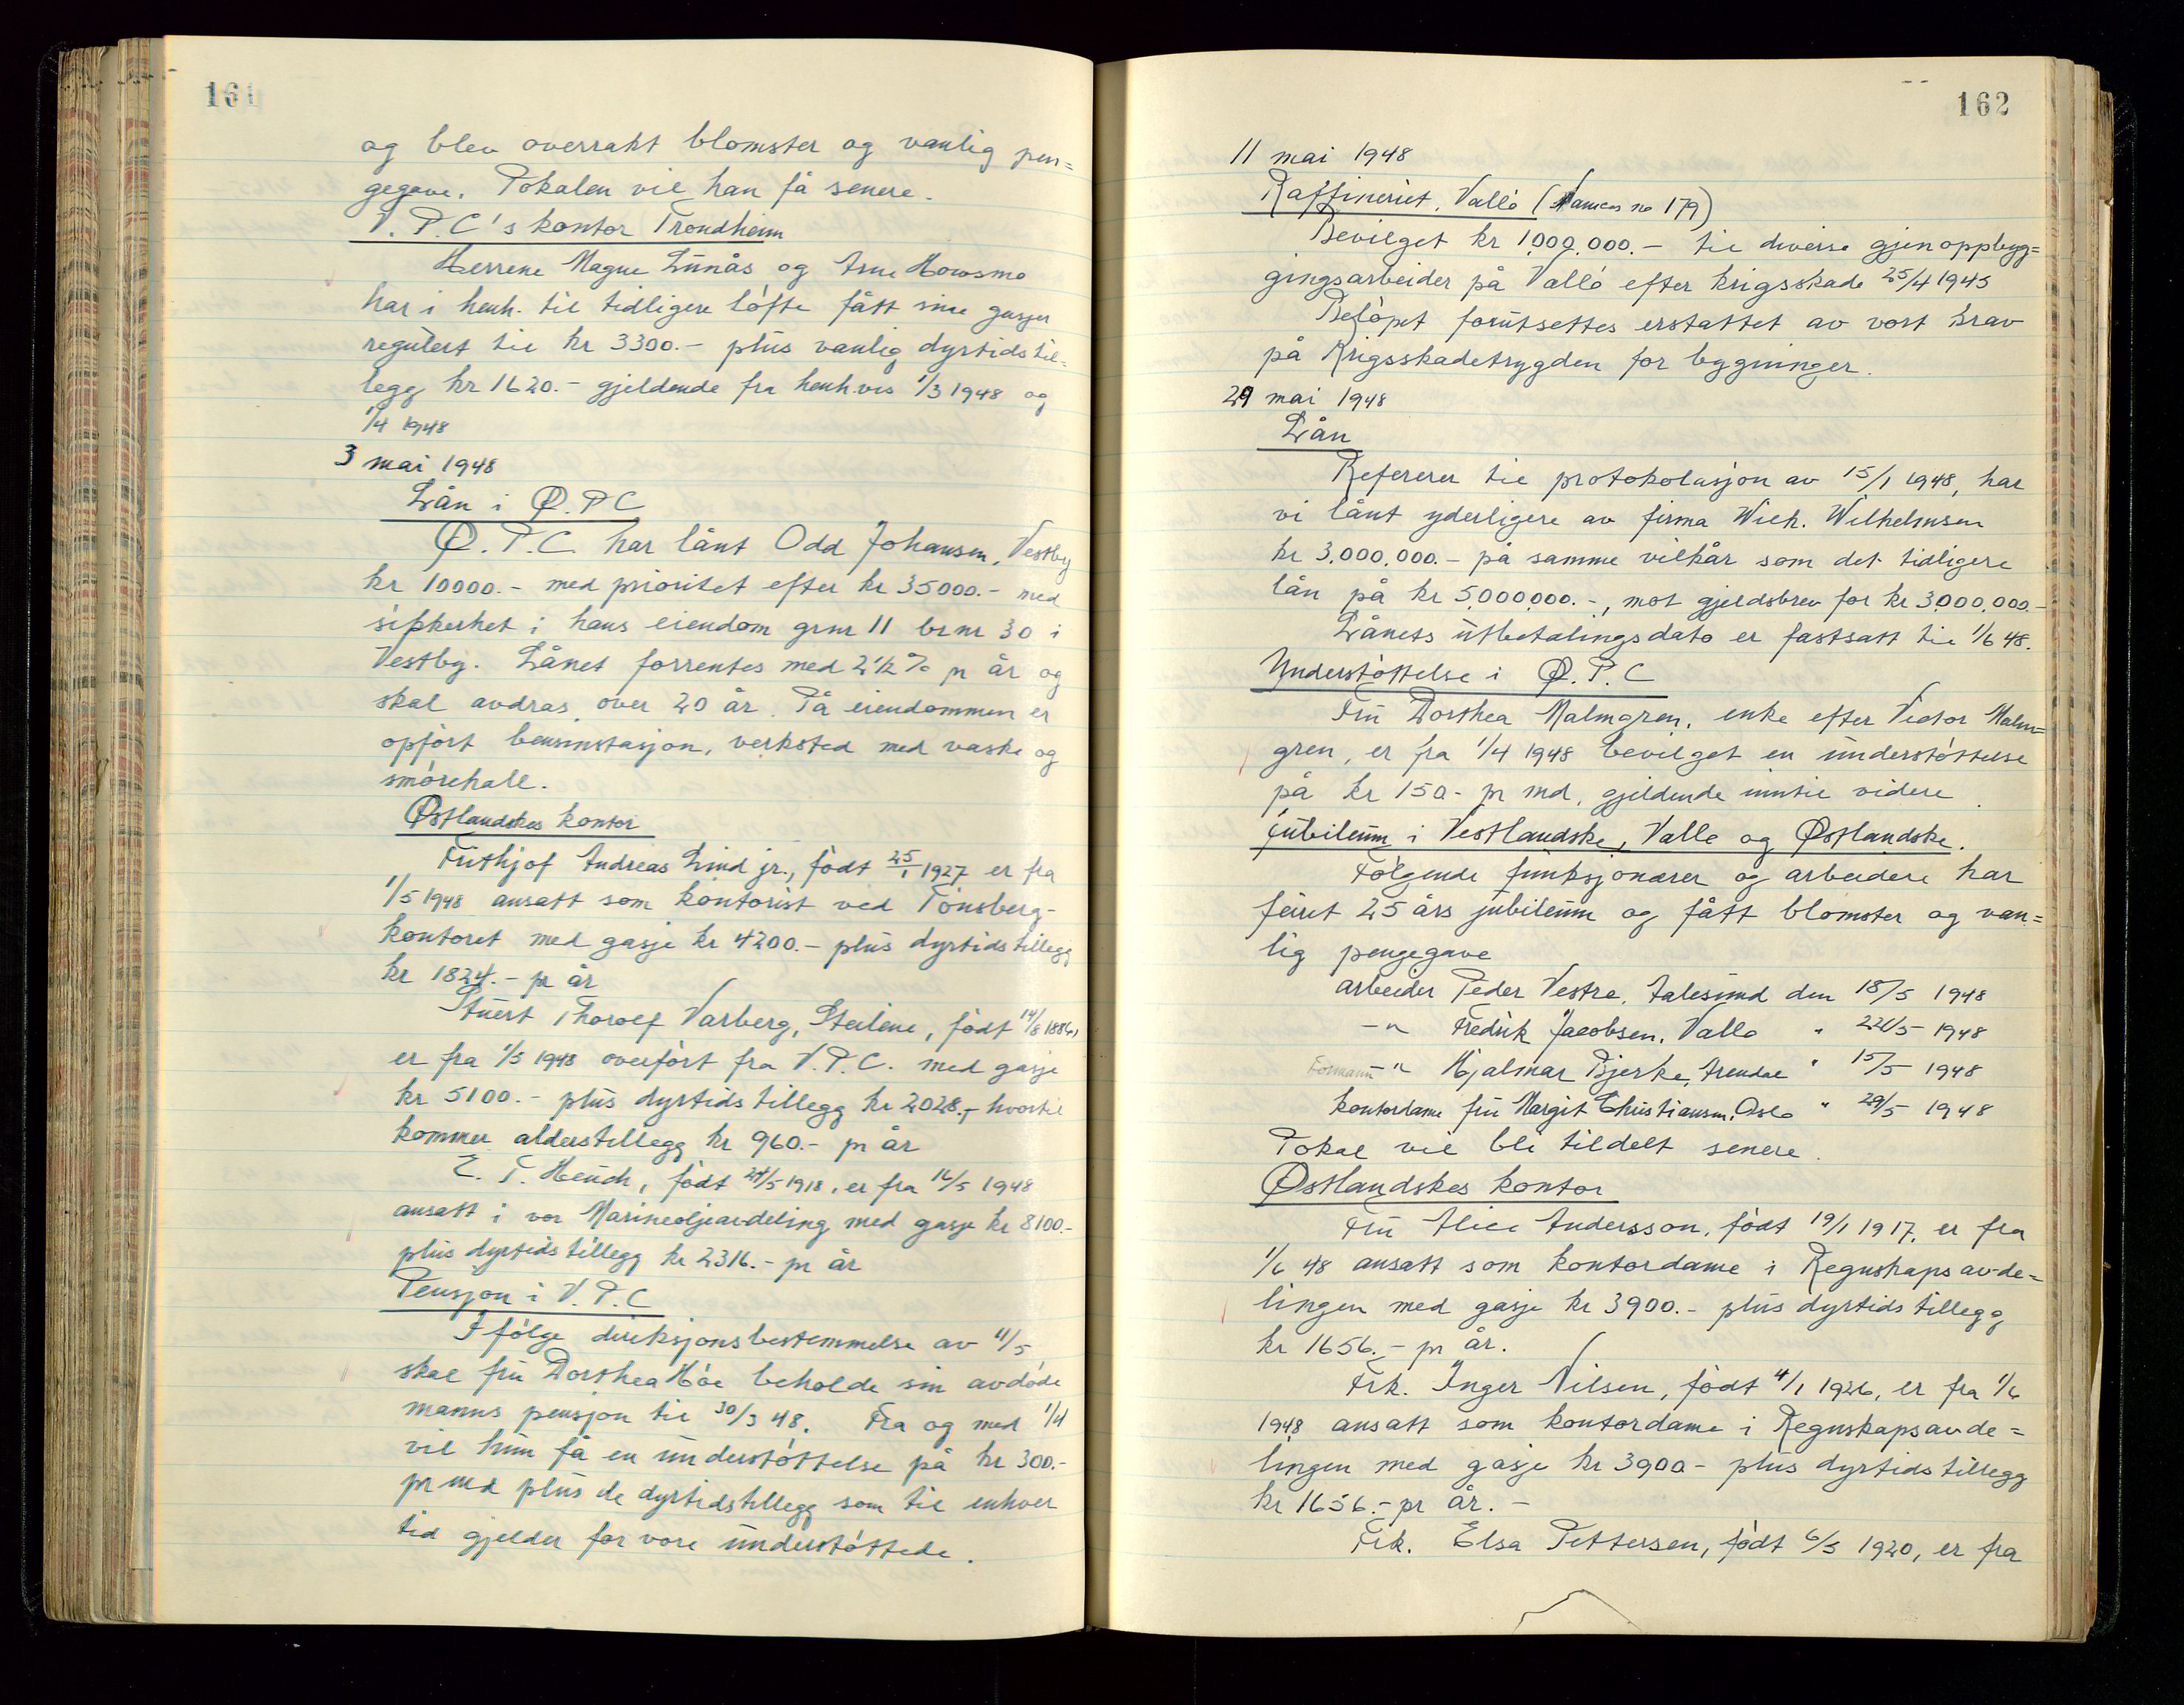 161
og blev overrakt blomster og vanlig pen=
gegave. Pokalen vil han få senere.
V.P.C's kontor Trondheim
Herrene Magne Lünås og Arne Howsmo
har i henh. til tidligere löfte fått sine gasjer
regulert til kr 3300.- plus vanlig dyrtidstil=
legg kr 1620.- gjeldende fra henh.vis 1/3 1948 og
1/4 1948
3 mai 1948
Lån i Ø.P.C
Ø.P.C. har lånt Odd Johansen, Vestby
kr 10000.- med prioritet efter kr 35000.- med
sikkerhet i hans eiendom grnr 11 brnr 30 i
Vestby. Lånet forrentes med 2 1/2 % pr år og
skal avdras over 20 år. På eiendommen er
opfört bensinstasjon, verksted med vaske og
smörehall.
Østlandskes kontor
Frithjof Andreas Lind jr., födt 25/1 1927 er fra
1/5 1948 ansatt som kontorist ved Tönsberg-
kontoret med gasje kr 4200.- plus dyrtidstillegg
kr 1824.- pr år
Stuert Thorolf Varberg, Steilene, födt 14/8 1884,
er fra 1/5 1948 overfört fra V.P.C. med gasje
kr 5100.- plus dyrtidstillegg kr 2028.-, hvortil
kommer alderstillegg kr 960.- pr år
E. T. Heuch, födt 24/5 1918, er fra 16/5 1948
ansatt i vor Marineoljeavdeling med gasje kr 8100.-
plus dyrtidstillegg kr 2316.- pr år
Pensjon i V.P.C
Ifölge direksjonsbestemmelse av 11/5
skal fru Dorthea Höe beholde sin avdöde
manns pensjon til 30/3 48. Fra og med 1/4
vil hun få en understöttelse på kr 300.-
pr md plus de dyrtidstillegg som til enhver
tid gjelder for vore understöttede.
162
11 mai 1948
Raffineriet, Vallö (Vamcas no 179)
Bevilget kr 1.000.000.- til diverse gjenoppbyg=
gingsarbeider på Vallö efter krigsskade 25/4 1945
Belöpet forutsettes erstattet av vort krav
på Krigsskadetrygden for bygninger.
29 mai 1948
Lån
Refererer til protokolasjon av 15/1 1948, har
vi lånt yderligere av firma Wilh. Wilhelmsen
kr 3.000.000.- på samme vilkår som det tidligere
lån på kr 5.000.000.-, mot gjeldsbrev for kr 3.000.000.-
Lånets utbetalingsdato er fastsatt til 1/6 48.
Understöttelse i Ø.P.C
Fru Dorthea Malmgren, enke efter Victor Malm=
gren, er fra 1/4 1948 bevilget en understöttelse
på kr 150.- pr md, gjeldende inntil videre.
Jubileum i Vestlandske, Vallö og Østlandske.
Fölgende funksjonærer og arbeidere har
feiret 25 års jubileum og fått blomster og van=
lig pengegave
arbeider Peder Vestre, Aalesund den 18/5 1948
-"- Fredrik Jacobsen, Vallö " 22/5 - 1948
Formann -"- Hjalmar Bjerke, Arendal " 15/5 - 1948
kontordame fru Margit Christiansen, Oslo " 29/5 - 1948
Pokal vil bli tildelt senere.
Østlandskes kontor
Fru Alice Andersson, födt 19/1 1917, er fra
1/6 48 ansatt som kontordame i Regnskapsavde=
lingen med gasje kr 3900.- plus dyrtidstillegg
kr 1656.- pr år.
Frk. Inger Nilsen, födt 4/1 1926, er fra 1/6
1948 ansatt som kontordame i Regnskapsavde=
lingen med gasje kr 3900.- plus dyrtidstillegg
kr 1656.- pr år.-
Frk. Elsa Pettersen, födt 6/5 1920, er fra